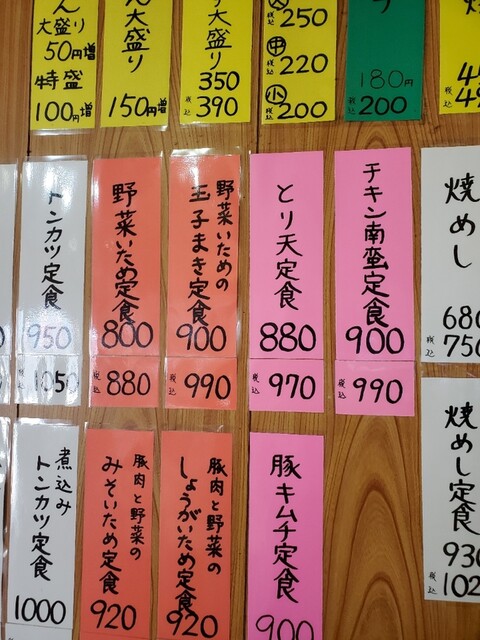 大盛り
50円増
特盛
100円増
大盛り
150円増
大盛り
350
税込 390
250
税込
甲 220
税込
小 200
税込
180円
税込 200
トンカツ定食
950
1050
野菜いため定食
800
税込 880
野菜いための
玉子まき定食
900
税込 990
とり天定食
880
税込 970
チキン南蛮定食
900
税込 990
焼めし
680
税込 750
煮込み
トンカツ定食
1000
豚肉と野菜の
みそいため定食
920
豚肉と野菜の
しょうがいため定食
920
豚キムチ定食
900
焼めし定食
930
税込 102